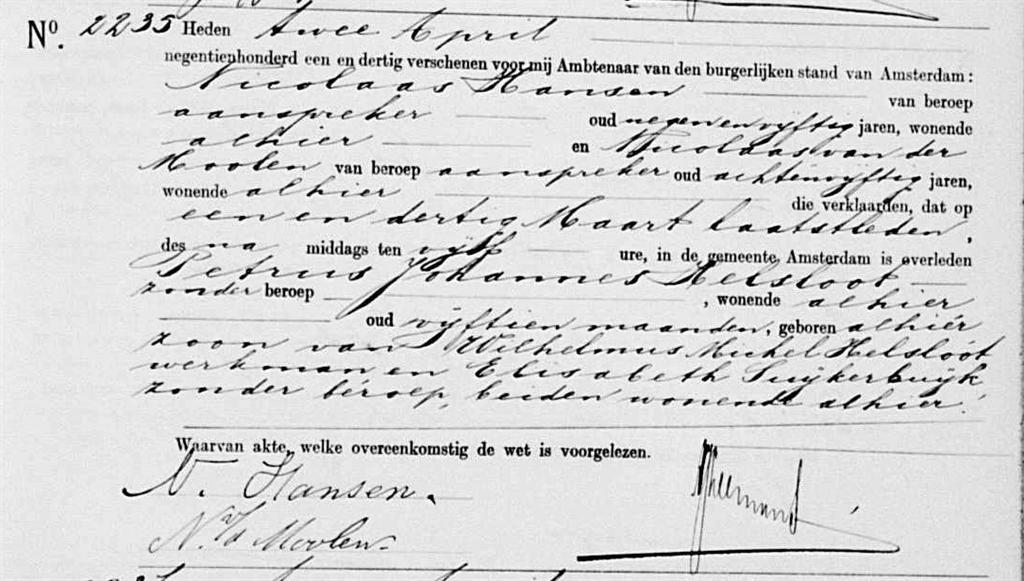 Nº. 2235 Heden twee April
negentienhonderd een en dertig verschenen voor mij Ambtenaar van den burgerlijken stand van Amsterdam:
Nicolaas Hansen van beroep
aanspreker oud negenenvyftig jaren, wonende
alhier en Nicolaas van der
Moolen van beroep aanspreker oud achtenvyftig jaren,
wonende alhier die verklaarden, dat op
een en dertig Maart laatstleden,
des na middags ten vyf ure, in de gemeente Amsterdam is overleden
Petrus Johannes Helsloot
zonder beroep , wonende alhier
oud vyftien maanden, geboren alhier
zoon van Wilhelmus Michel Helsloot
werkman en Elisabeth Suykerbuyk
zonder beroep, beiden wonende alhier.
Waarvan akte, welke overeenkomstig de wet is voorgelezen.
N. Hansen.
N. v/d Moolen.